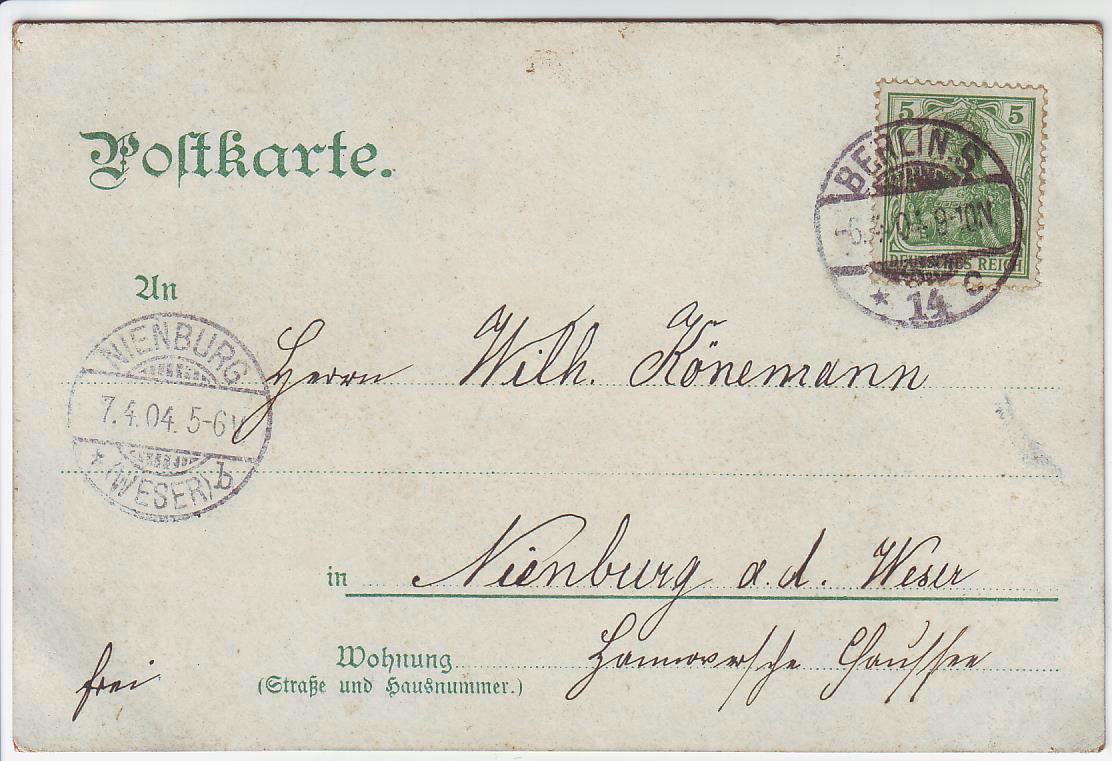 Postkarte.
5 5
DEUTSCHES REICH
BERLIN.S.
-6.4.04.9-10N
* 14 c
An
NIENBURG
7.4.04. 5-6V.
* (WESER) b
Herrn Wilh. Könemann
in Nienburg a. d. Weser
Wohnung Hannoversche Chaussee
(Straße und Hausnummer.)
frei